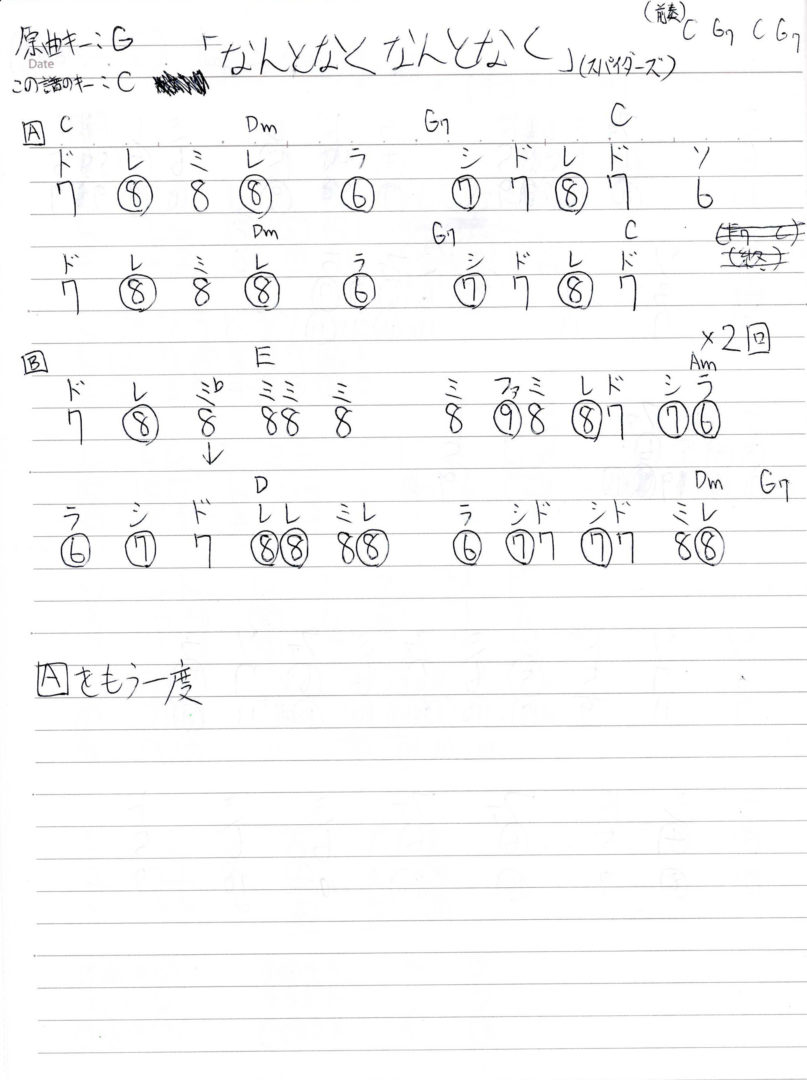 (前奏) C G7 C G7
原曲キー:G 「なんとなく なんとなく」(スパイダーズ)
Date
この譜のキー:C
A C Dm G7 C
ド レ ミ レ ラ シ ド レ ド ソ
7 ⑧ 8 ⑧ ⑥ ⑦ 7 ⑧ 7 6
Dm G7 C
ド レ ミ レ ラ シ ド レ ド
7 ⑧ 8 ⑧ ⑥ ⑦ 7 ⑧ 7
×2回
B E Am
ド レ ミ♭ ミミ ミ ミ ファミ レド シラ
7 ⑧ 8 88 8 8 ⑨8 ⑧7 ⑦⑥
↓
D Dm G7
ラ シ ド レレ ミレ ラ シド シド ミレ
⑥ ⑦ 7 ⑧⑧ 8⑧ ⑥ ⑦7 ⑦7 8⑧
Aをもう一度